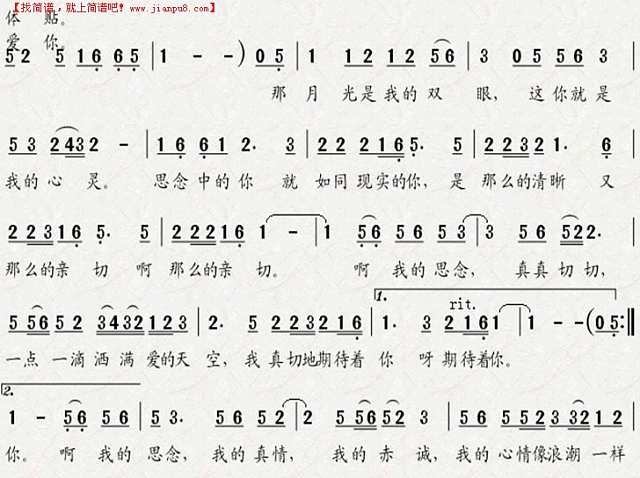 【找简谱，就上简谱吧！www.jianpu8.com】
体 贴。
爱 你。
5 2 5 1 6 6 5 | 1 - - ) 0 5 | 1 1 2 1 2 5 6 | 3 0 5 5 6 3
那 月 光是我的 双 眼， 这你就是
5 3 2 4 3 2 - | 1 6 6 1 2 · 3 | 2 2 2 1 6 5 · 5 | 2 2 3 2 1 · 6
我的 心 灵。 思念 中的 你 就 如同 现实的你， 是 那么的清晰 又
2 2 3 1 6 5 · 5 | 2 2 2 1 6 1 - | 1 5 6 5 6 5 3 | 3 5 6 5 2 2 ·
那么的亲 切 啊 那么的亲 切。 啊 我的 思念， 真真 切切，
1. rit.
5 5 6 5 2 3 4 3 2 1 2 3 | 2 · 3 5 3 2 3 2 1 6 | 1 · 3 2 1 6 1 | 1 - - ( 0 5 :‖
一点 一滴 洒满 爱的天 空， 我 真切地期待着 你 呀 期待着你。
2.
1 - 5 6 5 6 | 5 3 · 5 6 5 2 2 | 2 5 5 6 5 2 · | 5 6 5 2 3 3 2 1 2
你。 啊 我的 思念， 我的 真情， 我的 赤 诚， 我的 心情像浪潮 一样